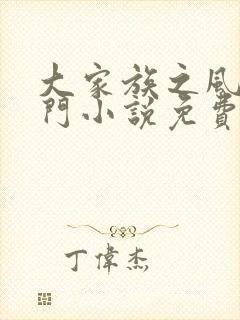 大家族之風
門小說免費
丁偉杰